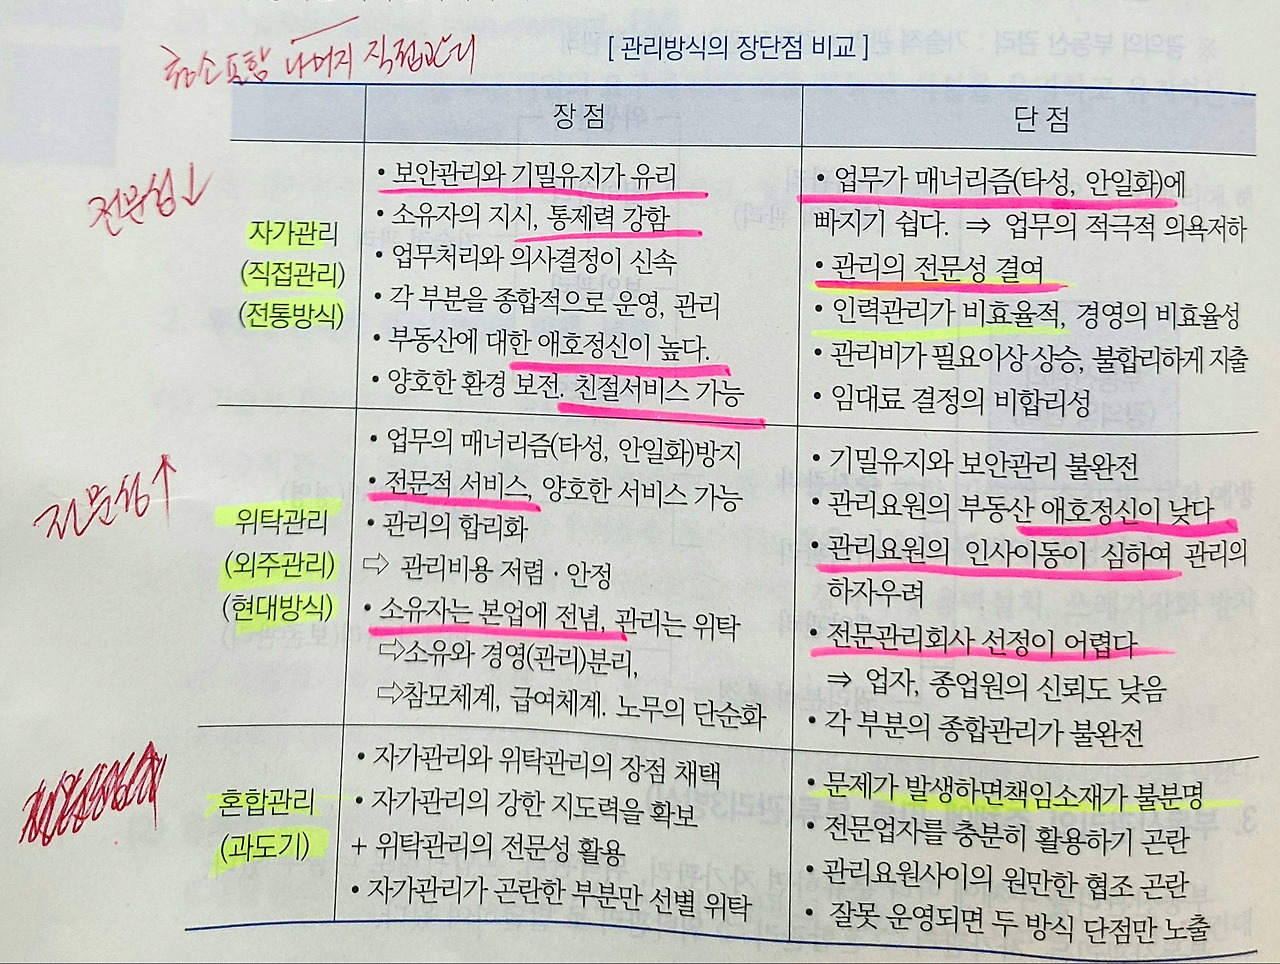 청소포함 나머지 직접관리
[ 관리방식의 장단점 비교 ]
장 점
단 점
전문성↓
자가관리
(직접관리)
(전통방식)
• 보안관리와 기밀유지가 유리
• 소유자의 지시, 통제력 강함
• 업무처리와 의사결정이 신속
• 각 부분을 종합적으로 운영, 관리
• 부동산에 대한 애호정신이 높다.
• 양호한 환경 보전. 친절서비스 가능
• 업무가 매너리즘(타성, 안일화)에
빠지기 쉽다. ⇒ 업무의 적극적 의욕저하
• 관리의 전문성 결여
• 인력관리가 비효율적, 경영의 비효율성
• 관리비가 필요이상 상승, 불합리하게 지출
• 임대료 결정의 비합리성
전문성↑
위탁관리
(외주관리)
(현대방식)
• 업무의 매너리즘(타성, 안일화)방지
• 전문적 서비스, 양호한 서비스 가능
• 관리의 합리화
⇨ 관리비용 저렴 · 안정
• 소유자는 본업에 전념, 관리는 위탁
⇨소유와 경영(관리)분리,
⇨참모체계, 급여체계. 노무의 단순화
• 기밀유지와 보안관리 불완전
• 관리요원의 부동산 애호정신이 낮다
• 관리요원의 인사이동이 심하여 관리의
하자우려
• 전문관리회사 선정이 어렵다
⇒ 업자, 종업원의 신뢰도 낮음
• 각 부분의 종합관리가 불완전
혼합관리
(과도기)
• 자가관리와 위탁관리의 장점 채택
• 자가관리의 강한 지도력을 확보
+ 위탁관리의 전문성 활용
• 자가관리가 곤란한 부분만 선별 위탁
• 문제가 발생하면책임소재가 불분명
• 전문업자를 충분히 활용하기 곤란
• 관리요원사이의 원만한 협조 곤란
• 잘못 운영되면 두 방식 단점만 노출